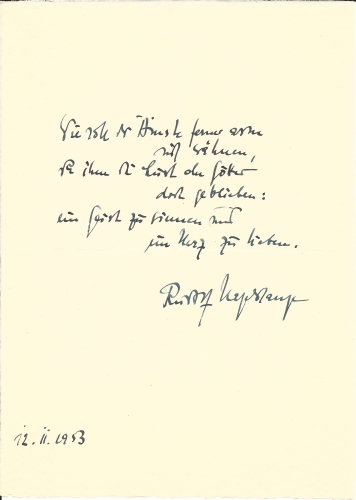 Wie soll der Mensch ferner arm
sich wähnen,
da ihm die Gunst der Götter
doch geblieben:
ein Geist zu sinnen und
ein Herz zu lieben.
Rudolf Hagelstange
12. II. 1953